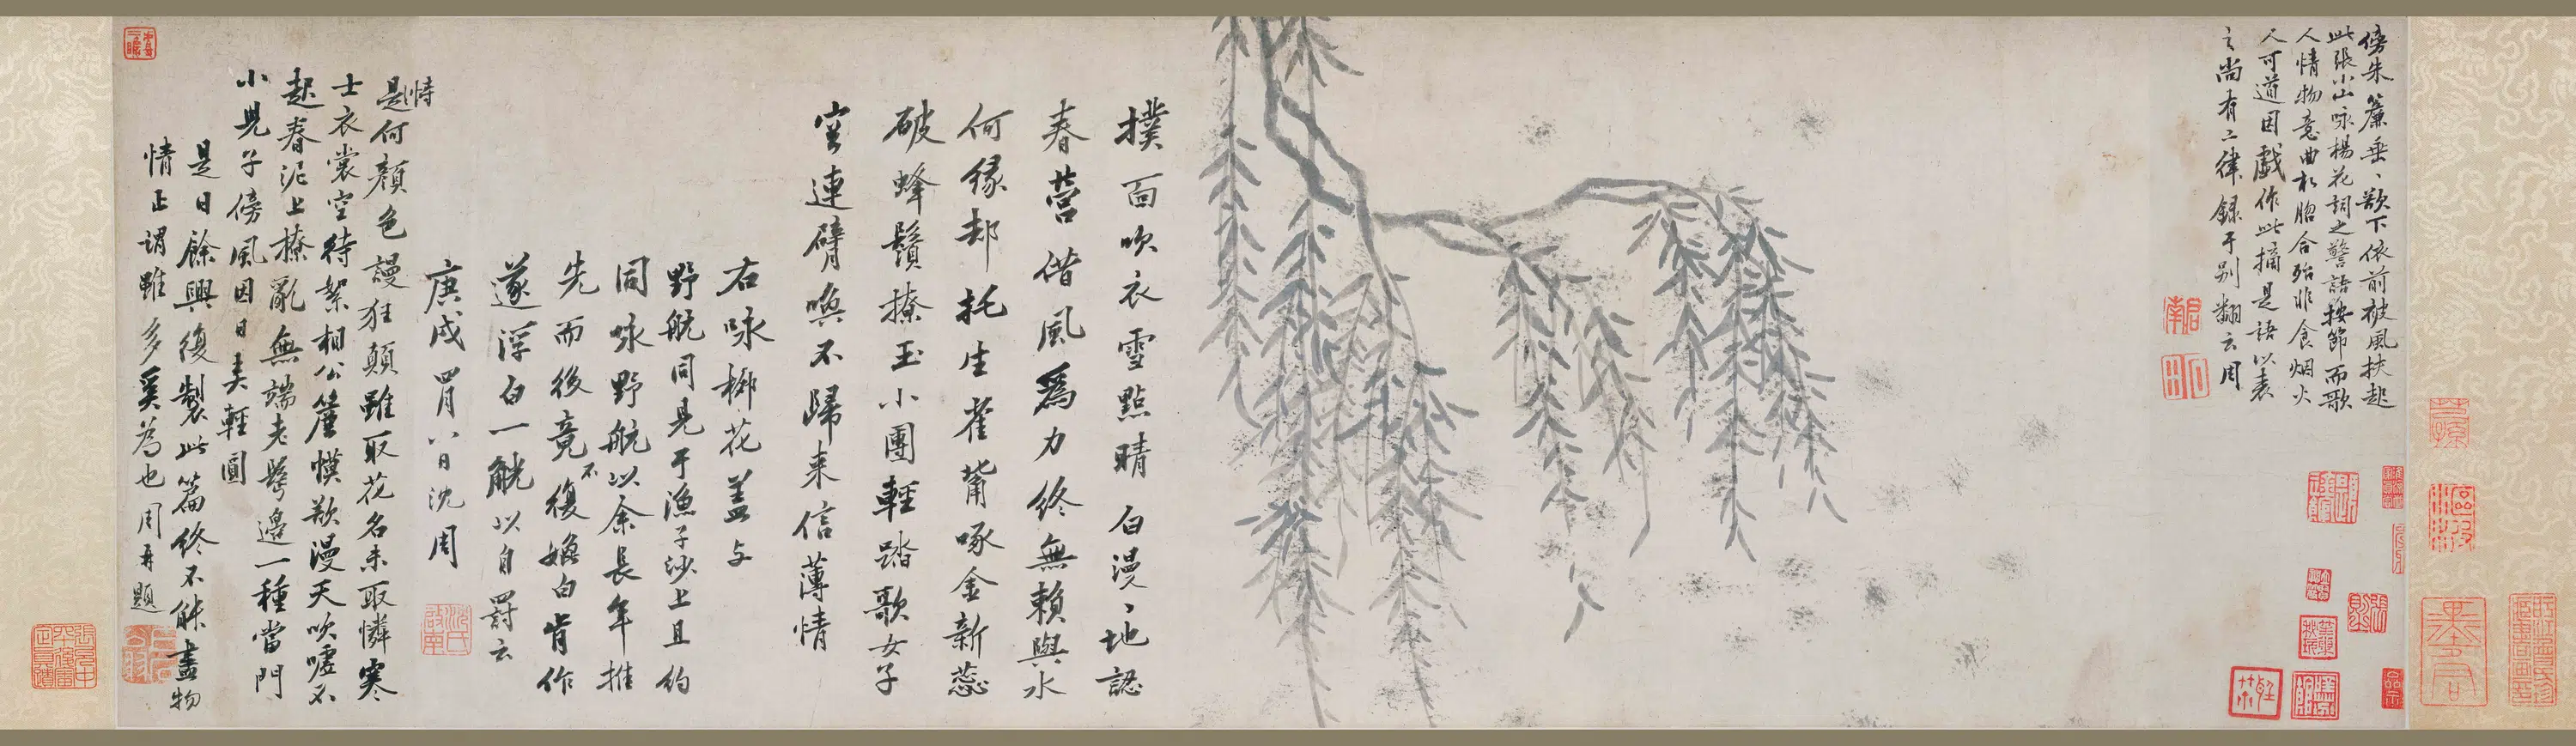 傍朱簾垂、欲下依前被風扶起
此張小山咏楊花詞之警語按節而歌
人情物意曲相脗合殆非食烟火
人可道因戲作此摘是語以表
之尚有二律録于别翻云周
撲面吹衣雪點晴白漫、地認
春營借風為力終無賴與水
何緣却托生雀觜啄金新蕊
破蜂鬚撩玉小團輕踏歌女子
空連臂喚不歸来信薄情
右咏栁花盖与
野航同見于漁子沙上且約
同咏野航以余長年推
先而後竟不復媿白肯作
遂浮白一觥以自罸云
庚戌四月八日沈周
恃是何顏色謾狂顛雖取花名未取憐寒
士衣裳空待絮相公簾幙欺漫天吹噓不
起春泥上撩亂無端老鬢邊一種當門
小兒子傍風因日弄輕圓
是日餘興復製此篇終不能盡物
情正謂雖多奚為也周再題